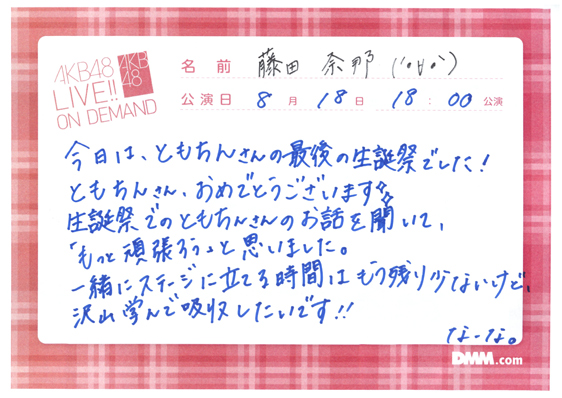 AKB48
LIVE!!
ON DEMAND
AKB
48
名前 藤田 奈那('o'∀'o')
公演日 8月18日 18:00公演
今日は、ともちんさんの最後の生誕祭でした!
ともちんさん、おめでとうございます
生誕祭でのともちんさんのお話を聞いて、
「もっと頑張ろう」と思いました。
一緒にステージに立てる時間はもう残り少ないけど、
沢山学んで吸収したいです!!
なーな。
DMM.com